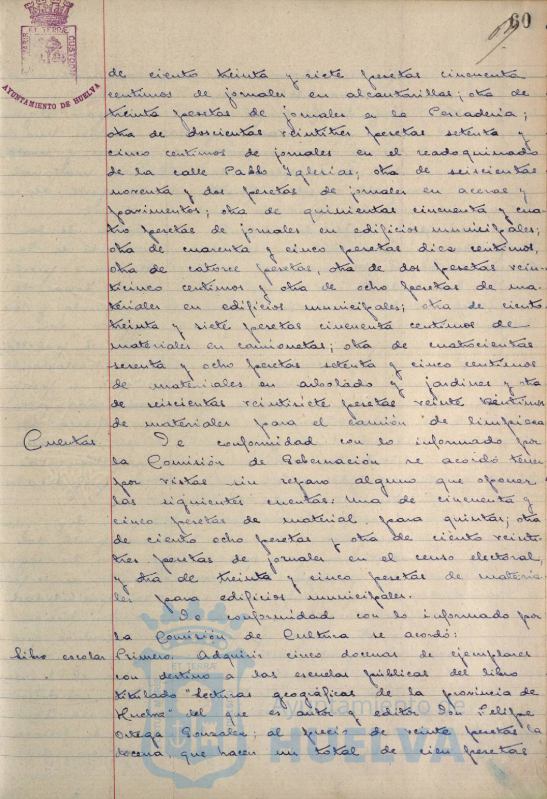 60
AYUNTAMIENTO DE HUELVA
de ciento treinta y siete pesetas cincuenta
centimos de jornales en alcantarillas; otra de
treinta pesetas de jornales en la Pescaderia;
otra de doscientas veintitres pesetas setenta y
cinco centimos de jornales en el readoquinado
de la calle Pablo Iglesias; otra de seiscientas
noventa y dos pesetas de jornales en aceras y
pavimentos; otra de quinientas cincuenta y cua-
tro pesetas de jornales en edificios municipales;
otra de cuarenta y cinco pesetas diez centimos,
otra de catorce pesetas, otra de dos pesetas vein-
ticinco centimos y otra de ocho pesetas de ma-
teriales en edificios municipales; otra de ciento
treinta y siete pesetas cincuenta centimos de
materiales en camionetas; otra de cuatrocientas
sesenta y ocho pesetas setenta y cinco centimos
de materiales en arbolado y jardines y otra
de seiscientas veintisiete pesetas veinte centimos
de materiales para el camión de limpieza
Cuentas. De conformidad con lo informado por
la Comisión de Gobernación se acordó tener
por vistas sin reparo alguno que oponer
las siguientes cuentas: Una de cincuenta y
cinco pesetas de material para quintas; otra
de ciento ocho pesetas y otra de ciento veinti-
tres pesetas de jornales en el censo electoral,
y otra de treinta y cinco pesetas de materia-
les para edificios municipales.
De conformidad con lo informado por
la Comisión de Cultura se acordó:
libro escolar Primero. Adquirir cinco docenas de ejemplares
con destino a las escuelas públicas del libro
titulado "Lecturas geográficas de la provincia de
Huelva" del que es autor y editor Don Felipe
Ortega Gonzalez; al precio de veinte pesetas la
docena, que hacen un total de cien pesetas
Ayuntamiento de
HUELVA